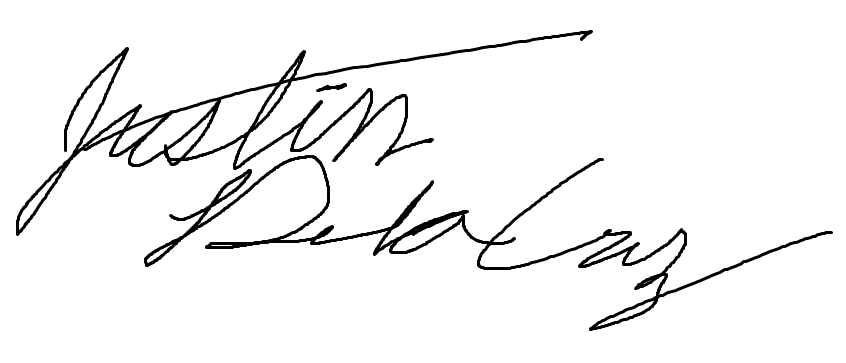 Justin
Dela Cruz